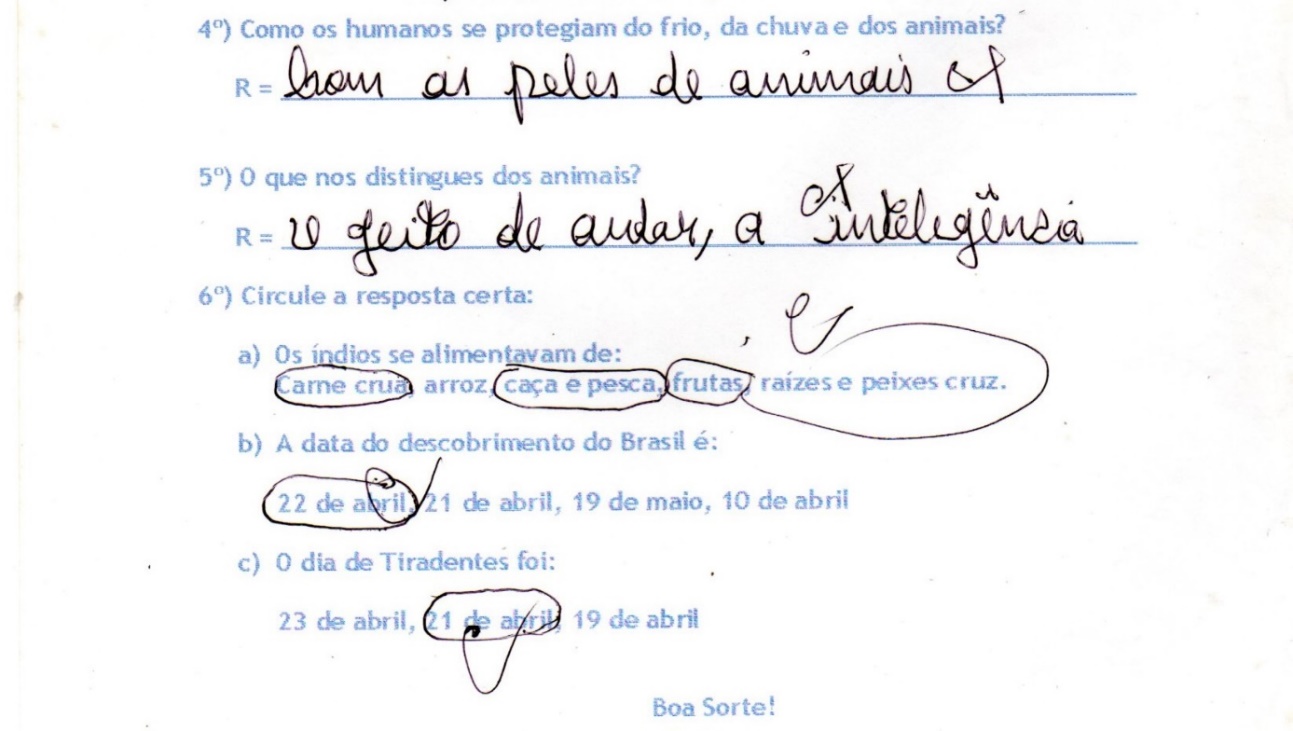 4º) Como os humanos se protegiam do frio, da chuva e dos animais?
R = Com as peles de animais
5º) O que nos distingues dos animais?
R = O jeito de andar, a intelegência
6º) Circule a resposta certa:
a) Os índios se alimentavam de:
Carne crua, arroz, caça e pesca, frutas, raízes e peixes cruz.
b) A data do descobrimento do Brasil é:
22 de abril, 21 de abril, 19 de maio, 10 de abril
c) O dia de Tiradentes foi:
23 de abril, 21 de abril, 19 de abril
Boa Sorte!